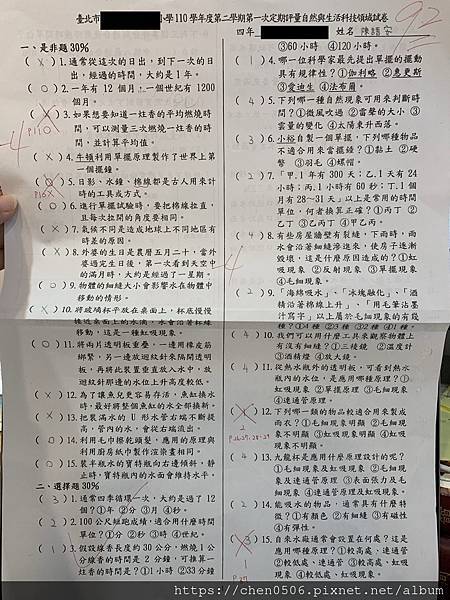 臺北市 學110學年度第二學期第一次定期評量自然與生活科技領域試卷
92
四年 姓名
一、是非題30%
(X)1.通常從這次的日出，到下一次的日
出，經過的時間，大約是1年。
(O)2.一年有12個月，一個世紀有1200
個月。
3.如果想要知道一炷香的平均燃燒時
間，可以測量三次燃燒一炷香的時
間，並計算平均值。
(X)4.牛頓利用單擺原理製作了世界上第
一個擺鐘。
5.日影、水鐘、棉線都是古人用來計
時的工具或方式。
(O)6.進行單擺試驗時，要把棉線拉直，
且每次拉開的角度要相同。
(X)7.氣候不同是造成地球上不同地區有
時差的原因。
(X)8.外婆的生日是農曆五月二十，當外
婆過完生日後，第一次看到天空中
的滿月時，大約是經過了一星期。
(O)9.物體的細縫大小會影響水在物體中
移動的情形。
(X)10.將玻璃杯平放在桌面上，杯底慢慢
接近桌面上的水滴，水會沿著杯緣
移動，這是一種虹吸現象。
(O)11.將兩片透明板重疊，一邊用橡皮筋
綁緊，另一邊放迴紋針來隔開透明
板，再將此裝置垂直放入水中，放
迴紋針那邊的水位上升高度較低。
(X)12.為了讓魚兒更容易存活，魚缸換水
時，最好將整個魚缸的水全部換新。
(X)13.把裝滿水的U形水管右端不斷提
高，管內的水，會從右端流出。
(O)14.利用毛巾擦乾頭髮，應用的原理與
利用廚房紙巾製作渲染畫相同。
(O)15.裝半瓶水的寶特瓶向右邊傾斜，靜
止時，寶特瓶內的水面會維持水平。
二、選擇題30%
(3)1.通常四季循環一次，大約是過了12
個？①年 ②分 ③月 ④秒。
(2)2.100公尺短跑成績，適合用什麼時間
單位？①分 ②秒 ③時 ④世紀。
(1)3.假設線香長度約30公分，燃燒1公
分線香的時間是2分鐘，可推算一
炷香的時間是？①1小時 ②33分鐘
③60小時 ④120小時。
(1)4.哪一位科學家最先提出單擺的擺動
具有規律性？①伽利略 ②惠更斯
③愛迪生 ④法布爾。
(4)5.下列哪一種自然現象可用來判斷時
間？①微風吹過 ②雷聲的大小 ③
雲量的變化 ④太陽東升西落。
(3)6.小裕自製一個單擺，下列哪種物品
不適合用來當擺錘？①黏土 ②硬
幣 ③羽毛 ④螺帽。
(2)7.「甲.1年有300天；乙.1天有24
小時；丙.1小時有60秒；丁.1個
月有28～31天」以上是常用的時間
單位，何者換算正確？①丙丁 ②
乙丁 ③乙丙丁 ④甲乙丙。
(4)8.有些房屋牆壁有裂縫，下雨時，雨
水會沿著細縫滲進來，使房子逐漸
毀壞，這是什麼原因造成的？①虹
吸現象 ②反射現象 ③單擺現象
④毛細現象。
(2)9.「海綿吸水」、「冰塊融化」、「酒
精沿著棉線上升」、「用毛筆沾墨
汁寫字」以上屬於毛細現象的有幾
種？①4種 ②3種 ③2種 ④1種。
(4)10.我們可以用什麼工具來觀察物體上
有沒有細縫？①三稜鏡 ②溫度計
③酒精燈 ④放大鏡。
(4)11.從熱水瓶外的透明板，可看到熱水
瓶內的水位，是應用哪種原理？①
虹吸現象 ②單擺原理 ③毛細現象
④連通管原理。
12.下列哪一類的物品較適合用來製成
雨衣？①毛細現象明顯 ②毛細現
象不明顯 ③虹吸現象明顯 ④虹吸
現象不明顯。
(4)13.九龍杯是應用什麼原理設計的呢？
①毛細現象及虹吸現象 ②毛細現
象及連通管原理 ③表面張力及毛
細現象 ④連通管原理及虹吸現象。
(2)14.能吸水的物品，通常具有什麼特
徵？①有顏色 ②有細縫 ③有磁性
④有彈性。
15.自來水廠通常會設置在何處？這是
應用哪種原理？①較高處、連通管
②較低處、連通管 ③較高處、虹吸
現象 ④較低處、虹吸現象。
https://chen0506.pixnet.net/album